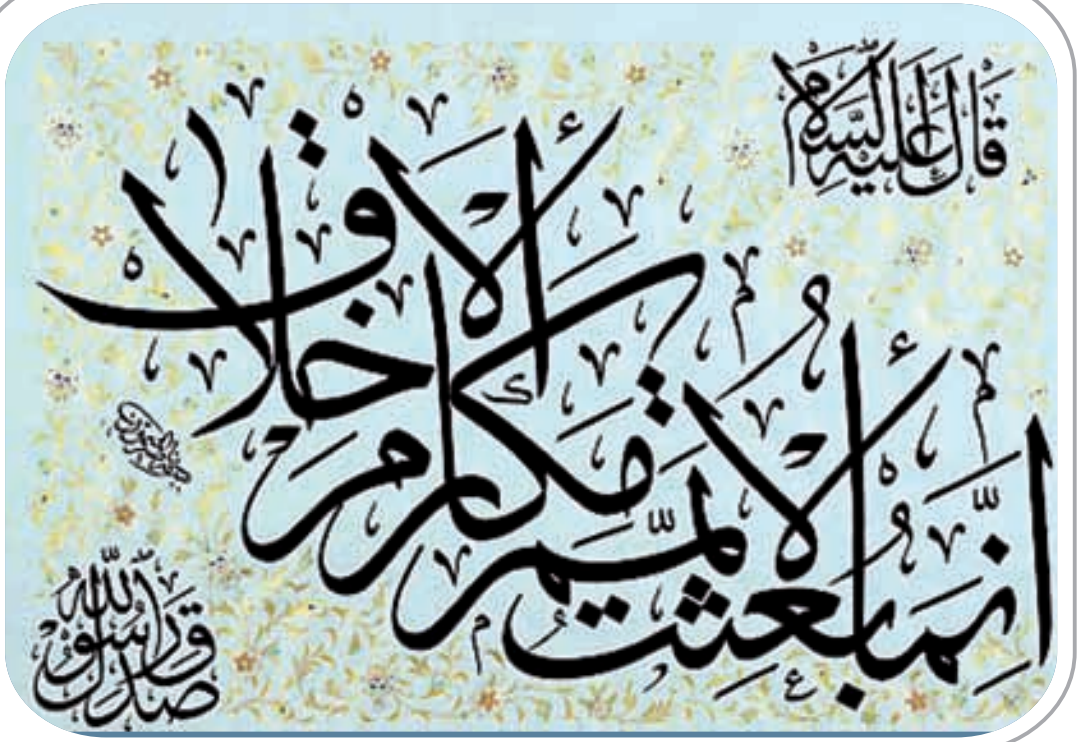 قَالَ عَلَيْهِ السَّلَامُ
إنَّمَا بُعِثْتُ لِأُتَمِّمَ مَكَارِمَ الْأَخْلَاقِ
صَدَقَ رَسُولُ اللّٰهِ